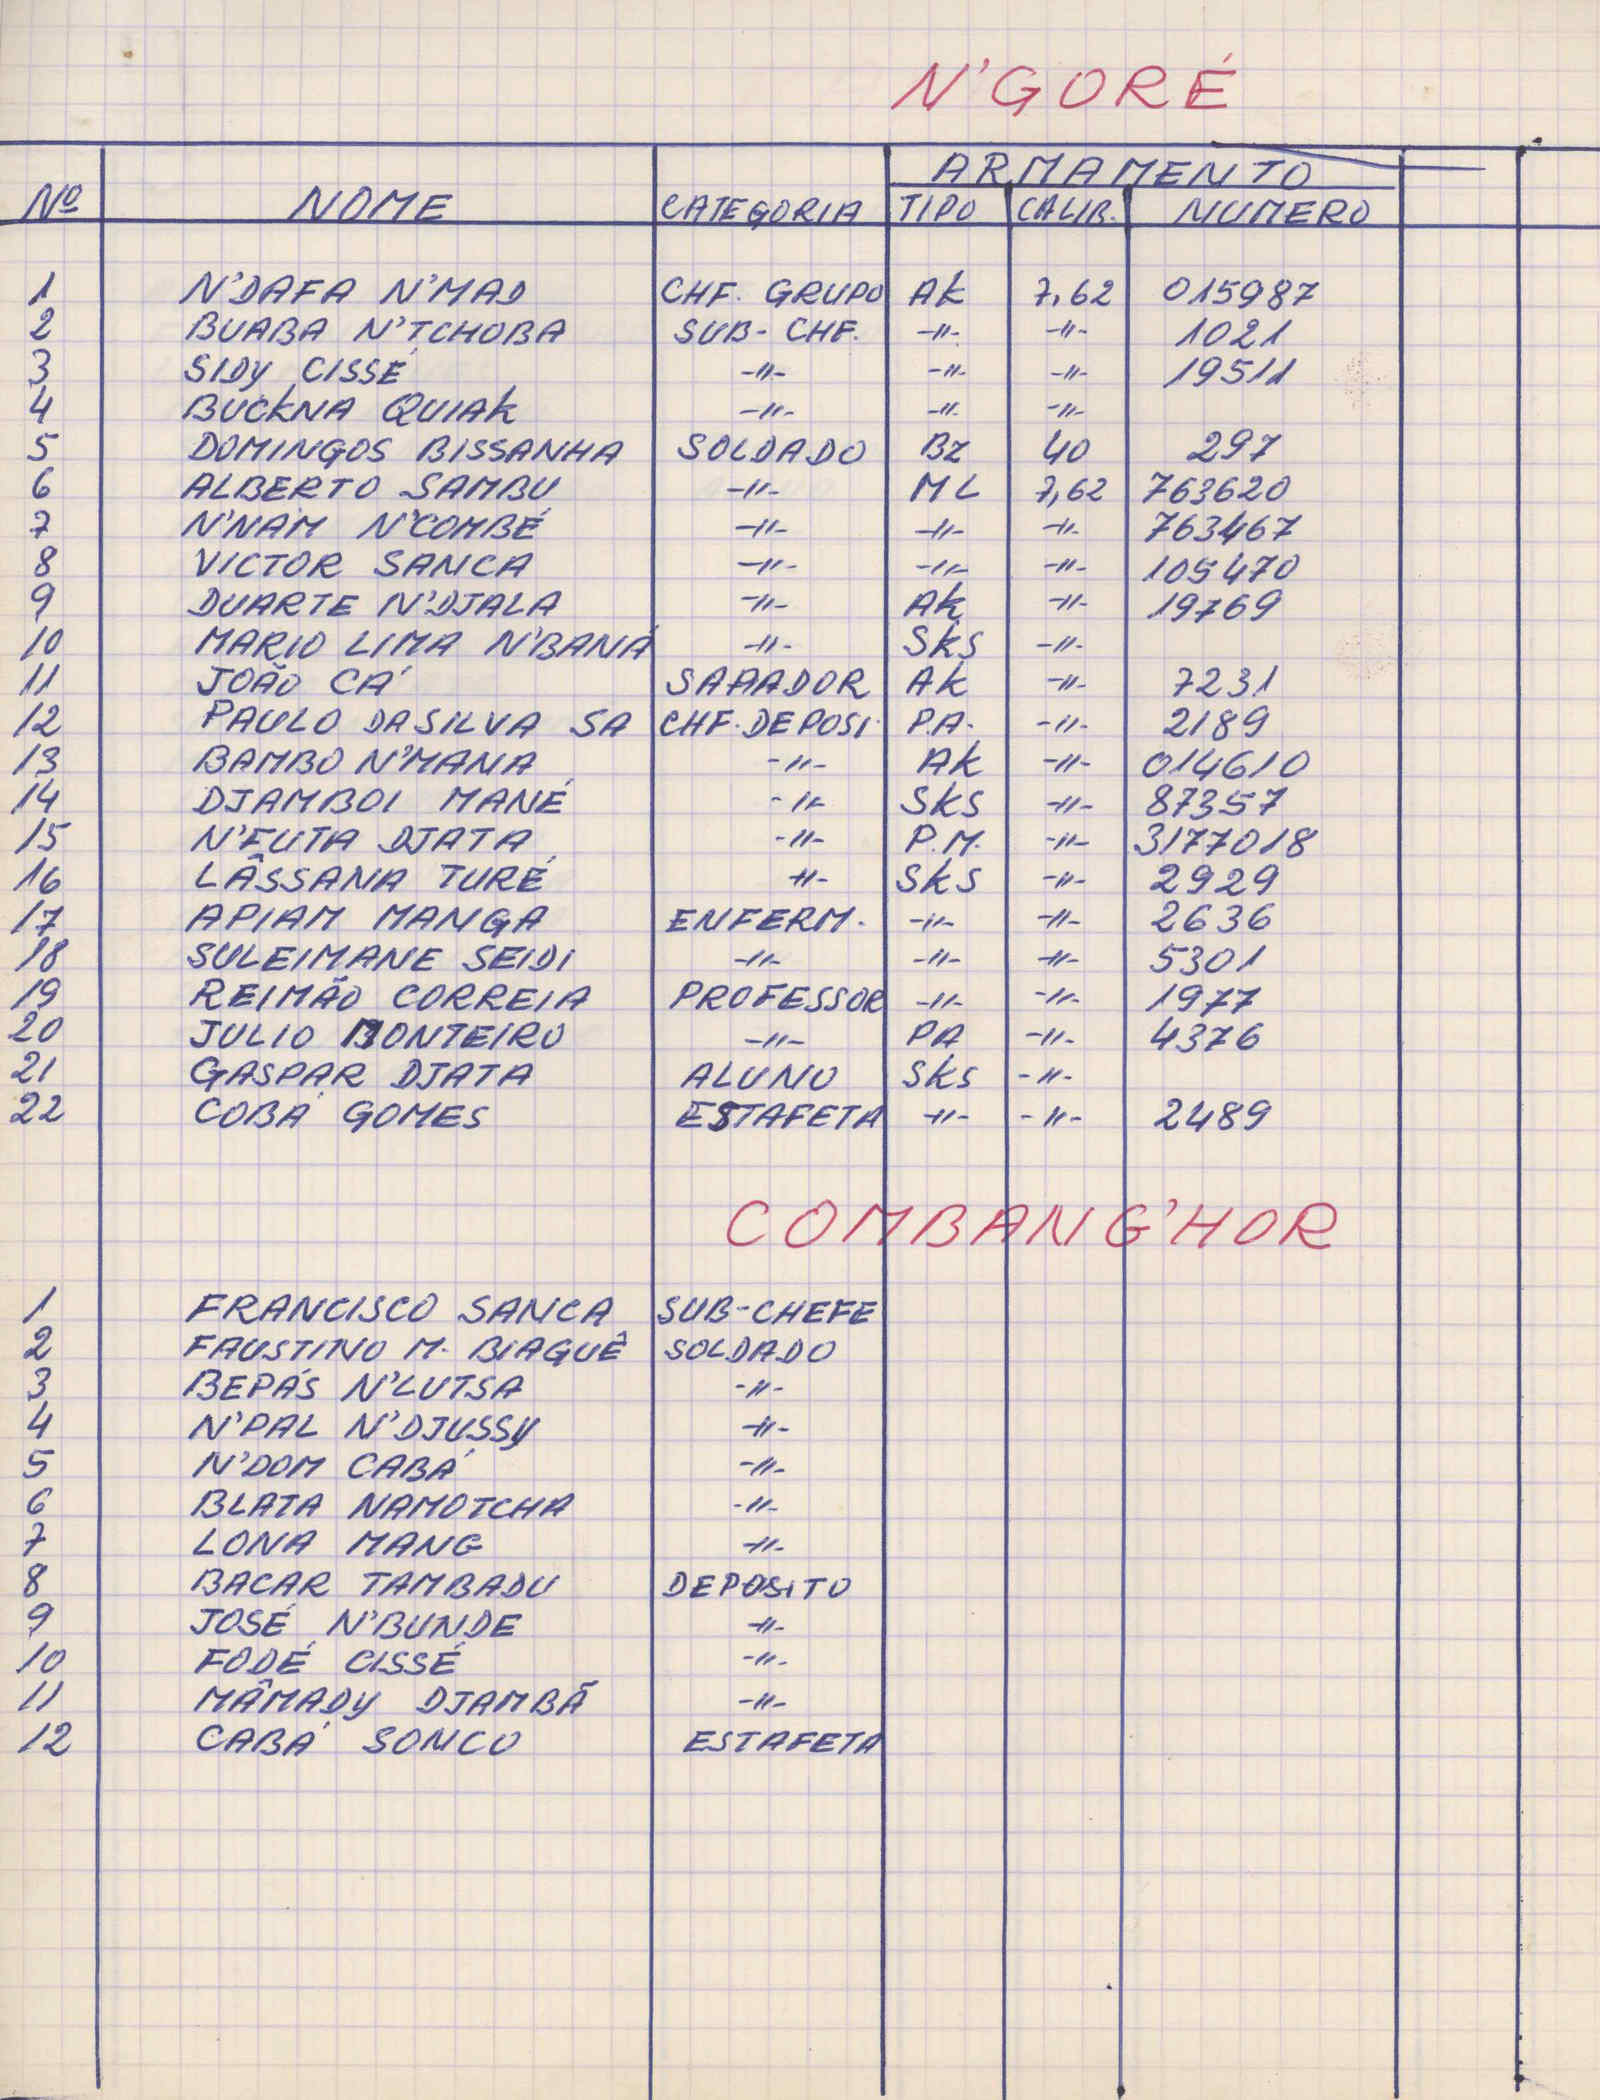 N'GORÉ
ARMAMENTO
Nº NOME CATEGORIA TIPO CALIB. NUMERO
1 N'DAFA N'MAD CHF. GRUPO AK 7,62 015987
2 BUABA N'TCHOBA SUB-CHF. -"- -"- 1021
3 SIDY CISSÉ -"- -"- -"- 19511
4 BUCKNA QUIAK -"- -"- -"-
5 DOMINGOS BISSANHA SOLDADO BZ 40 297
6 ALBERTO SAMBU -"- ML 7,62 763620
7 N'NAM N'COMBÉ -"- -"- -"- 763467
8 VICTOR SANCA -"- -"- -"- 105470
9 DUARTE N'DJALA -"- AK -"- 19769
10 MARIO LIMA N'BANÁ -"- SKS -"-
11 JOÃO CÁ SAPADOR AK -"- 7231
12 PAULO DA SILVA SA CHF. DEPOSI. P.A. -"- 2189
13 BAMBO N'MANA -"- AK -"- 014610
14 DJAMBOI MANÉ -"- SKS -"- 87357
15 N'FUTA DJATA -"- P.M. -"- 3177018
16 LÂSSANA TURÉ -"- SKS -"- 2929
17 APIAM MANGA ENFERM. -"- -"- 2636
18 SULEIMANE SEIDI -"- -"- -"- 5301
19 REIMÃO CORREIA PROFESSOR -"- -"- 1977
20 JULIO MONTEIRO -"- PA -"- 4376
21 GASPAR DJATA ALUNO SKS -"-
22 COBÁ GOMES ESTAFETA -"- -"- 2489
COMBANG'HOR
1 FRANCISCO SANCA SUB-CHEFE
2 FAUSTINO M. BIAGUÊ SOLDADO
3 BEPÁS N'LUTSA -"-
4 N'PAL N'DJUSSY -"-
5 N'DOM CABÁ -"-
6 BLATA NAMOTCHA -"-
7 LONA MANG -"-
8 BACAR TAMBADU DEPOSITO
9 JOSÉ N'BUNDE -"-
10 FODÉ CISSÉ -"-
11 MÂMADY DJAMBÃ -"-
12 CABÁ SONCO ESTAFETA